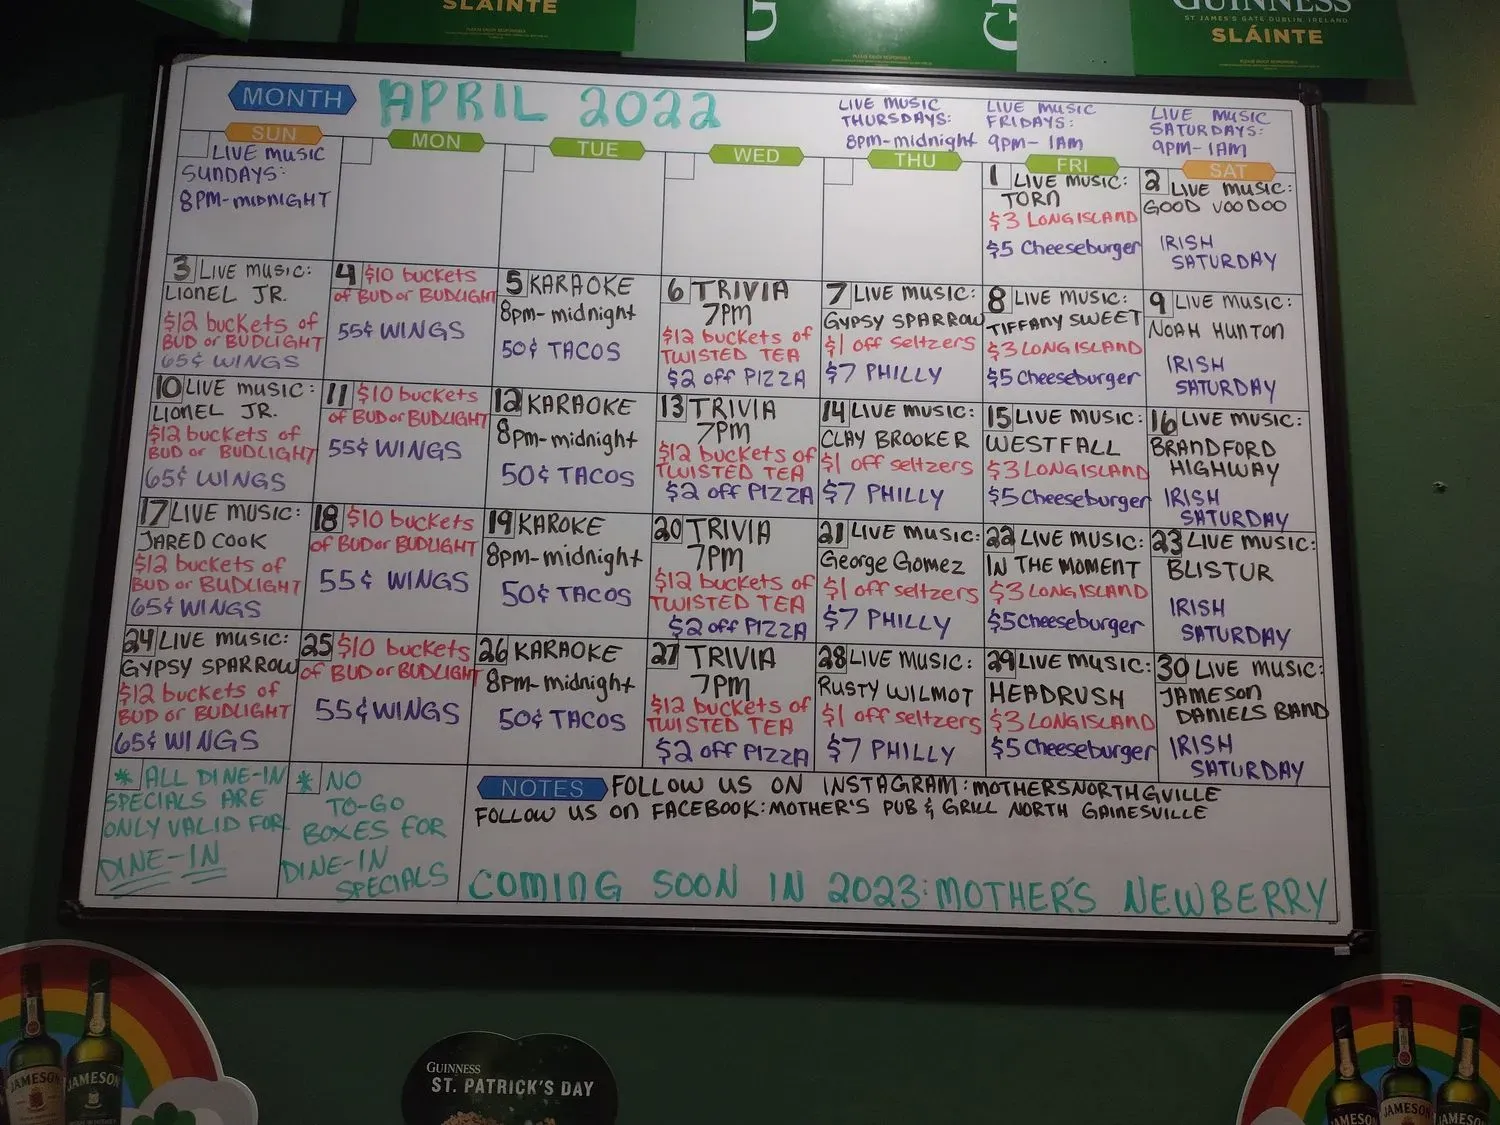 SLÁINTE
GUINNESS
ST JAMES'S GATE DUBLIN, IRELAND
SLÁINTE
MONTH
APRIL 2022
LIVE MUSIC
THURSDAYS:
8pm-midnight
LIVE MUSIC
FRIDAYS:
9pm- 1AM
LIVE MUSIC
SATURDAYS:
9pm- 1AM
SUN
MON
TUE
WED
THU
FRI
SAT
LIVE MUSIC
SUNDAYS:
8PM-MIDNIGHT
1 LIVE MUSIC:
TORN
$3 LONG ISLAND
$5 Cheeseburger
2 LIVE MUSIC:
GOOD VOODOO
IRISH
SATURDAY
3 LIVE MUSIC:
LIONEL JR.
$12 buckets of
BUD or BUDLIGHT
65¢ WINGS
4 $10 buckets
of BUD or BUDLIGHT
55¢ WINGS
5 KARAOKE
8pm-midnight
50¢ TACOS
6 TRIVIA
7PM
$12 buckets of
TWISTED TEA
$2 off PIZZA
7 LIVE MUSIC:
GYPSY SPARROW
$1 off seltzers
$7 PHILLY
8 LIVE MUSIC:
TIFFANY SWEET
$3 LONG ISLAND
$5 Cheeseburger
9 LIVE MUSIC:
NOAH HUNTON
IRISH
SATURDAY
10 LIVE MUSIC:
LIONEL JR.
$12 buckets of
BUD or BUDLIGHT
65¢ WINGS
11 $10 buckets
of BUD or BUDLIGHT
55¢ WINGS
12 KARAOKE
8pm-midnight
50¢ TACOS
13 TRIVIA
7PM
$12 buckets of
TWISTED TEA
$2 off PIZZA
14 LIVE MUSIC:
CLAY BROOKER
$1 off seltzers
$7 PHILLY
15 LIVE MUSIC:
WESTFALL
$3 LONG ISLAND
$5 Cheeseburger
16 LIVE MUSIC:
BRANDFORD
HIGHWAY
IRISH
SATURDAY
17 LIVE MUSIC:
JARED COOK
$12 buckets of
BUD or BUDLIGHT
65¢ WINGS
18 $10 buckets
of BUD or BUDLIGHT
55¢ WINGS
19 KAROKE
8pm-midnight
50¢ TACOS
20 TRIVIA
7PM
$12 buckets of
TWISTED TEA
$2 off PIZZA
21 LIVE MUSIC:
George Gomez
$1 off seltzers
$7 PHILLY
22 LIVE MUSIC:
IN THE MOMENT
$3 LONG ISLAND
$5 Cheeseburger
23 LIVE MUSIC:
BLISTUR
IRISH
SATURDAY
24 LIVE MUSIC:
GYPSY SPARROW
$12 buckets of
BUD or BUDLIGHT
65¢ WINGS
25 $10 buckets
of BUD or BUDLIGHT
55¢ WINGS
26 KARAOKE
8pm-midnight
50¢ TACOS
27 TRIVIA
7PM
$12 buckets of
TWISTED TEA
$2 off PIZZA
28 LIVE MUSIC:
RUSTY WILMOT
$1 off seltzers
$7 PHILLY
29 LIVE MUSIC:
HEADRUSH
$3 LONG ISLAND
$5 Cheeseburger
30 LIVE MUSIC:
JAMESON
DANIELS BAND
IRISH
SATURDAY
* ALL DINE-IN
SPECIALS ARE
ONLY VALID FOR
DINE-IN
* NO
TO-GO
BOXES FOR
DINE-IN
SPECIALS
NOTES
FOLLOW US ON INSTAGRAM: MOTHERSNORTHGVILLE
FOLLOW US ON FACEBOOK: MOTHER'S PUB & GRILL NORTH GAINESVILLE
COMING SOON IN 2023: MOTHER'S NEWBERRY
JAMESON
JAMESON
GUINNESS
ST. PATRICK'S DAY
JAMESON
JAMESON
JAMESON